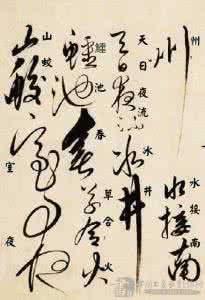 州水接南
天日夜流冰井
鱷池春草合火
山蛟室夜